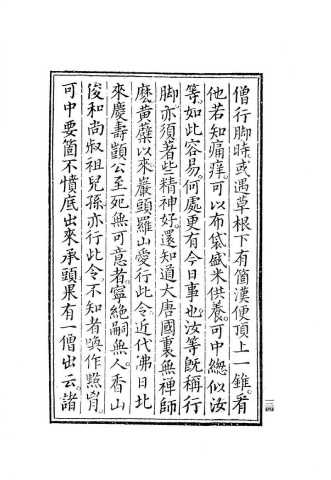 僧行脚時或遇草根下有箇漢便頂上一錐看
他若知痛痒可以布袋盛米供養可中總似汝
等如此容易何處更有今日事也汝等既稱行
脚亦須著些精神好還知道大唐國裏無禪師
麽黄蘗以來巖頭羅山愛行此令近代佛日北
來慶壽顗公至死無可意者寧絶嗣無人香山
俊和尚叔祖兒孫亦行此令不知者喚作㸃胷
可中要箇不憤底出來承頭果有一僧出云諸